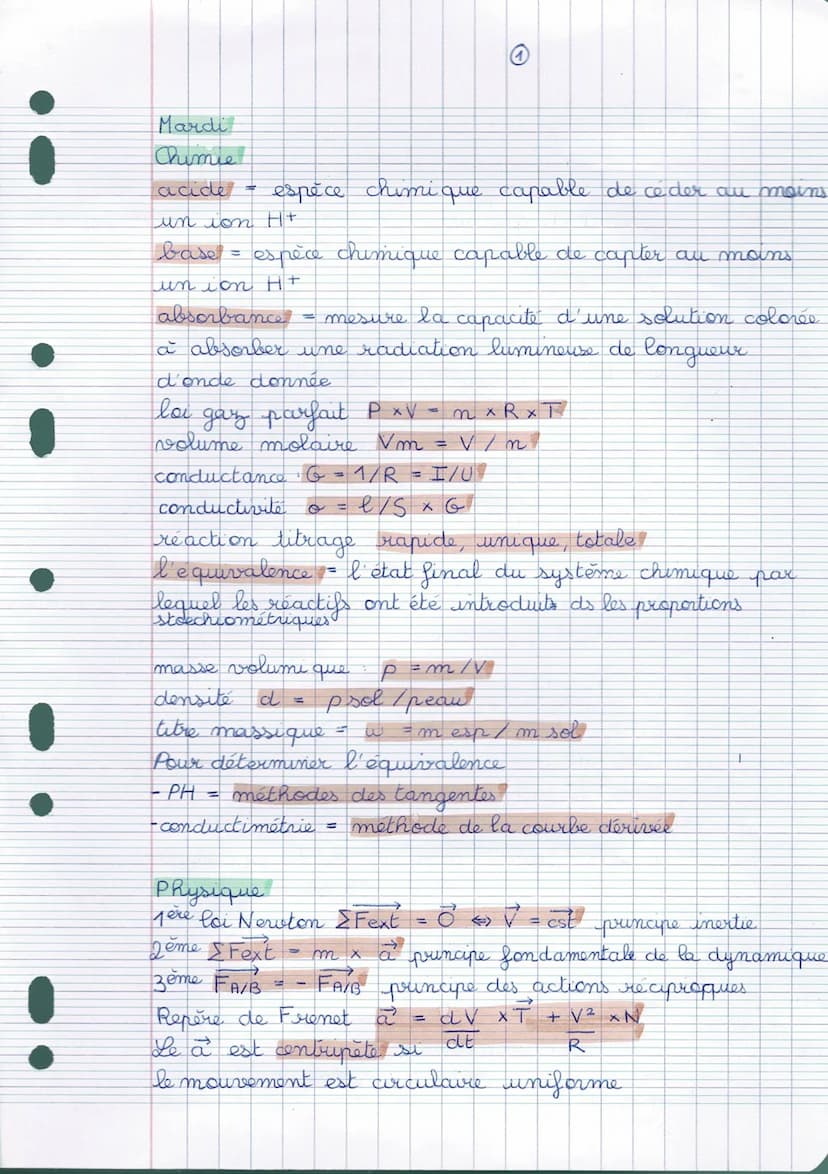 1
Mardi
Chimie
acide = espèce chimique capable de céder au moins
un ion H+
base = espèce chimique capable de capter au moins
un ion H+
absorbance = mesure la capacité d'une solution colorée
à absorber une radiation lumineuse de longueur
d'onde donnée
loi gaz parfait P x V = n x R x T
volume molaire Vm = V / n
conductance G = 1/R = I/U
conductivité σ = l/S x G
réaction titrage rapide, unique, totale
l'equivalence = l'état final du système chimique par
lequel les réactifs ont été introduits ds les proportions
stoechiométriques
masse volumique : ρ = m/V
densité d = ρsol/ρeau
titre massique = w = m esp/ m sol
Pour déterminer l'équivalence
- PH = méthodes des tangentes
- conductimétrie = méthode de la courbe dérivée
Physique
1ère loi Newton Σ→Fext = →O ⇔ →V = →cst principe inertie
2ème Σ→Fext = m x →a principe fondamentale de la dynamique
3ème →FA/B = - →FA/B principe des actions réciproques
Repère de Frenet →a = dV/dt x →T + V²/R x N
Le →a est centripète si
le mouvement est circulaire uniforme